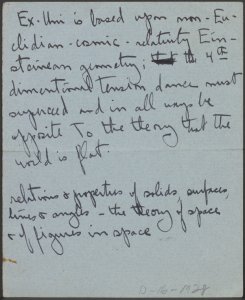 Ex-Uni is based upon non-Eu-
clidian-cosmic-relativity Ein-
steinean geometry; the 4th
dimentional tension dance must
superced and in all ways be
opposite to the theory that the
world is flat.
relations & properties of solids, surfaces,
lines & angles - the theory of space
& of figures in space
D-16-1928